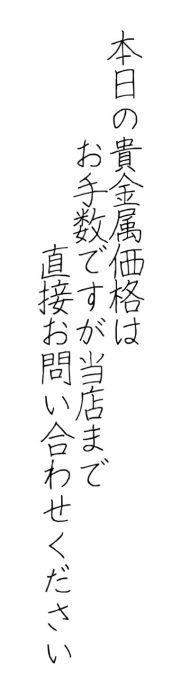 本日の貴金属価格は
お手数ですが当店まで
直接お問い合わせください